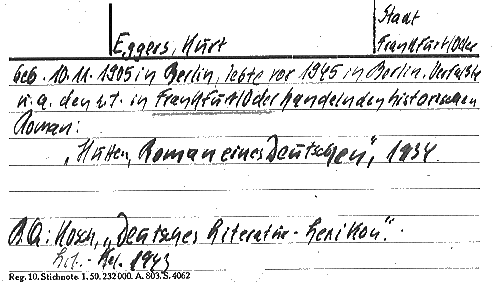 Stadt
Eggers, Kurt Frankfurt/Oder
geb. 10.11.1905 in Berlin, lebte vor 1945 in Berlin. Verfaßte
u.a. den z.T. in Frankfurt/Oder handelnden historischen
Roman:
„Hutten, Roman eines Deutschen", 1934.
B.Q: Kosch, „Deutsches Literatur-Lexikon".
1943
Reg. 10. Stichnote. 1. 50. 232000. A. 803. S. 4062